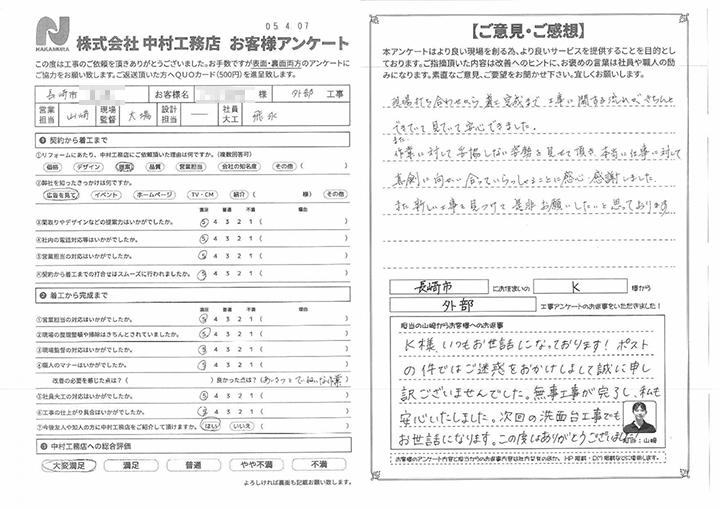 NAKAMURA
05.4.07
株式会社 中村工務店 お客様アンケート
この度は工事のご依頼を頂きありがとうございました。お手数ですが表面・裏面両方のアンケートに
ご協力をお願い致します。ご返送頂いた方へQUOカード(500円)を進呈致します。
長崎市 お客様名 様 外部 工事
営業担当 山崎 現場監督 大場 設計担当 ― 社員大工 飛永
❶ 契約から着工まで
①リフォームにあたり、中村工務店にご依頼頂いた理由は何ですか。(複数回答可)
価格 デザイン 提案 品質 営業担当 会社の知名度 その他( )
②弊社を知ったきっかけは何ですか。
広告を見て イベント ホームページ TV・CM 紹介( 様) その他
満足 普通 不満 理由
③間取りやデザインなどの提案力はいかがでしたか。 5 4 3 2 1 ( )
④社内の電話対応等はいかがでしたか。 5 4 3 2 1 ( )
⑤営業担当の対応はいかがでしたか。 5 4 3 2 1 ( )
⑥契約から着工までの打合せはスムーズに行われましたか。 5 4 3 2 1 ( )
❷ 着工から完成まで
満足 普通 不満 理由
①営業担当の対応はいかがでしたか。 5 4 3 2 1 ( )
②現場の整理整頓や掃除はきちんとされていましたか。 5 4 3 2 1 ( )
③現場監督の対応はいかがでしたか。 5 4 3 2 1 ( )
④職人のマナーはいかがでしたか。 5 4 3 2 1 ( )
改善の必要を感じた点は?( ) 良かった点は?(あいさつとていねいな作業)
⑤社員大工の対応はいかがでしたか。 5 4 3 2 1 ( )
⑥工事の仕上がり具合はいかがでしたか。 5 4 3 2 1 ( )
⑦今後友人や知人の方に中村工務店をご紹介して頂けますか。 はい いいえ ( )
❸ 中村工務店への総合評価
大変満足 満足 普通 やや不満 不満
よろしければ裏面も記載お願い致します。
【ご意見・ご感想】
本アンケートはより良い現場を創る為、より良いサービスを提供することを目的とし
ております。ご指摘頂いた内容は改善へのヒントに、お褒めの言葉は社員や職人の励
みになります。素直なご意見、ご要望をお聞かせ下さい。宜しくお願いします。
現場打ち合わせから、着工完成まで工事に関する流れがきちんと
できていて見ていて安心できました。
また
作業に対して妥協しない姿勢を見せて頂き、本当に仕事に対して
真剣に向かい合っていらっしゃることに感心、感謝しました。
また新しい工事を見つけて是非お願いしたいと思っております。
長崎市 にお住まいの K 様から
外部 工事アンケートのお返事をいただきました!
担当の山崎からお客様へのお返事
K様、いつもお世話になっております! ポスト
の件ではご迷惑をおかけしまして誠に申し
訳ございませんでした。無事工事が完了し、私も
安心いたしました。次回の洗面台工事でも
お世話になります。この度はありがとうございました!
担当:山崎
お客様のアンケート内容と担当からのお返事内容は社内安全のほか、HP掲載・DM掲載などに使用します。